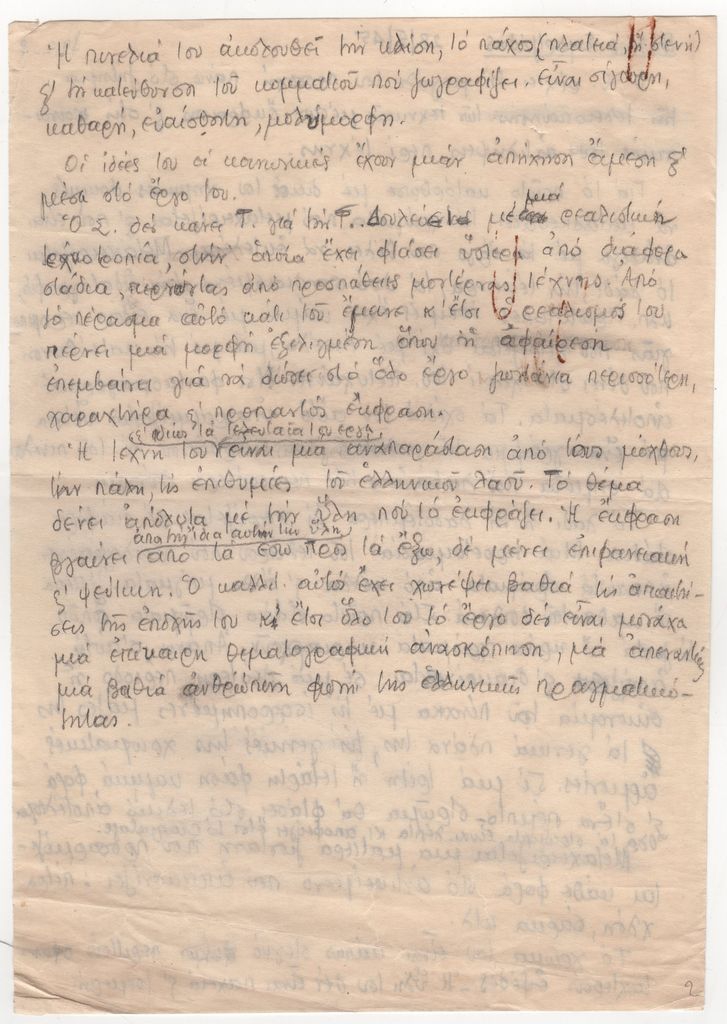 Ἡ πινελιά του ἀκολουθεῖ τήν κλίση, τό πάχος (πλατειά, ἤ στενή)
κ' τή κατεύθυνση τοῦ κομματιοῦ πού ζωγραφίζει. εἶναι σίγουρη,
καθαρή, εὐαίσθητη, πολύμορφη.
Οἱ ἰδέες του οἱ κοινωνικές ἔχουν μιάν ἀπήχηση ἄμεση κ'
μέσα στό ἔργο του.
Ὁ Σ. δέν κάνει Τ. γιά τήν Τ. Δουλεύει μέ μιά ρεαλιστική
τεχνοτροπία, στήν ὁποία ἔχει φτάσει ὕστερα ἀπό διάφορα
στάδια, περνώντας ἀπό προσπάθειες μοντέρνας τέχνης. Ἀπό
τό πέρασμα αὐτό κάτι τοῦ ἔμεινε κ' ἔτσι ὁ ρεαλισμός του
παίρνει μιά μορφή ἐξελιγμένη ὅπου ἡ ἀφαίρεση
ἐπεμβαίνει γιά νά δώσει στό ὅλο ἔργο ζωντάνια περισσότερη,
χαραχτήρα κ' προπαντός ἔκφραση.
κ' κυρίως τά τελευταῖα του ἔργα,
Ἡ τέχνη του εἶναι μιά ἀναπαράσταση ἀπό τούς μόχθους,
τήν πάλη, τίς ἐπιθυμίες τοῦ ἑλληνικοῦ λαοῦ. Τό θέμα
δένει ἀπόλυτα μέ τήν ὕλη πού τό ἐκφράζει. Ἡ ἔκφραση
ἀπό τήν ἴδια αὐτήν τήν ὕλη,
βγαίνει ἀπό τά ἔσω πρός τά ἔξω, δέ μένει ἐπιφανειακή
κ' ψεύτικη. Ὁ καλλιτ. αὐτός ἔχει χωνέψει βαθιά τίς ἀπαιτή-
σεις τῆς ἐποχῆς του κι' ἔτσι ὅλο του τό ἔργο δέν εἶναι μονάχα
μιά ἐπίκαιρη θεματογραφική ἀνασκόπηση, μά ἀπεναντίας
μιά βαθιά ἀνθρώπινη φωνή τῆς ἑλληνικῆς πραγματικό-
τητας.
2